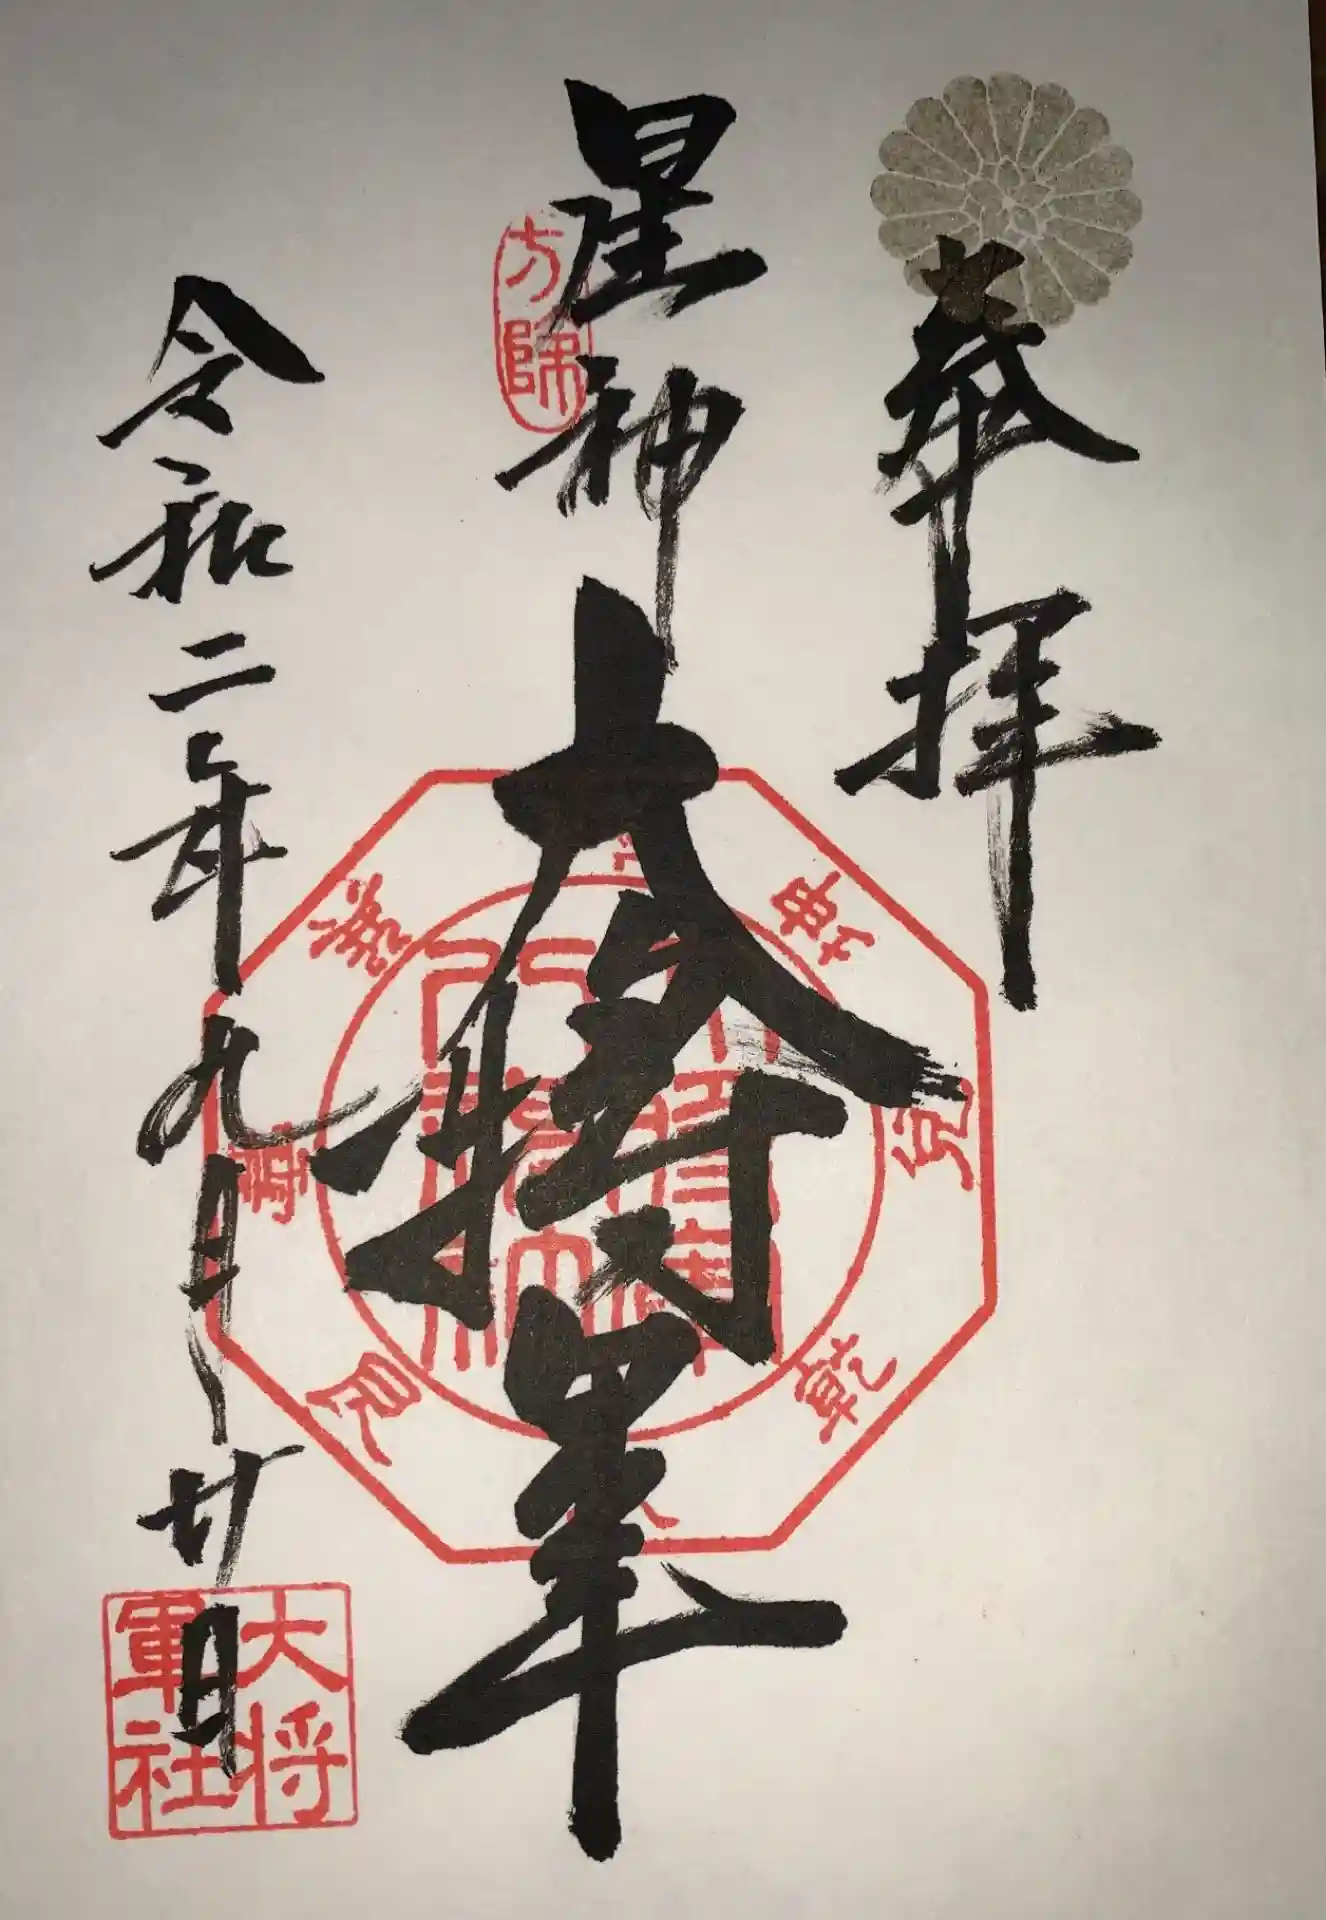 奉拝
星神
大将軍
令和二年九月廿日
方除
大将軍社
乾
兌
坤
艮